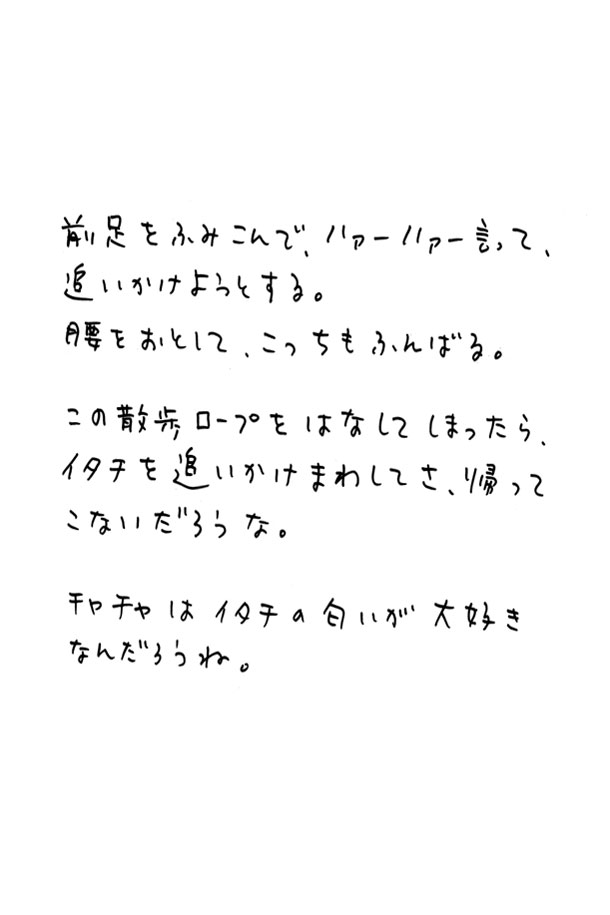 前足をふみこんで、ハァーハァー言って、
追いかけようとする。
腰をおとして、こっちもふんばる。
この散歩ロープをはなしてしまったら、
イタチを追いかけまわしてさ、帰って
こないだろうな。
チャチャはイタチの匂いが大好き
なんだろうね。